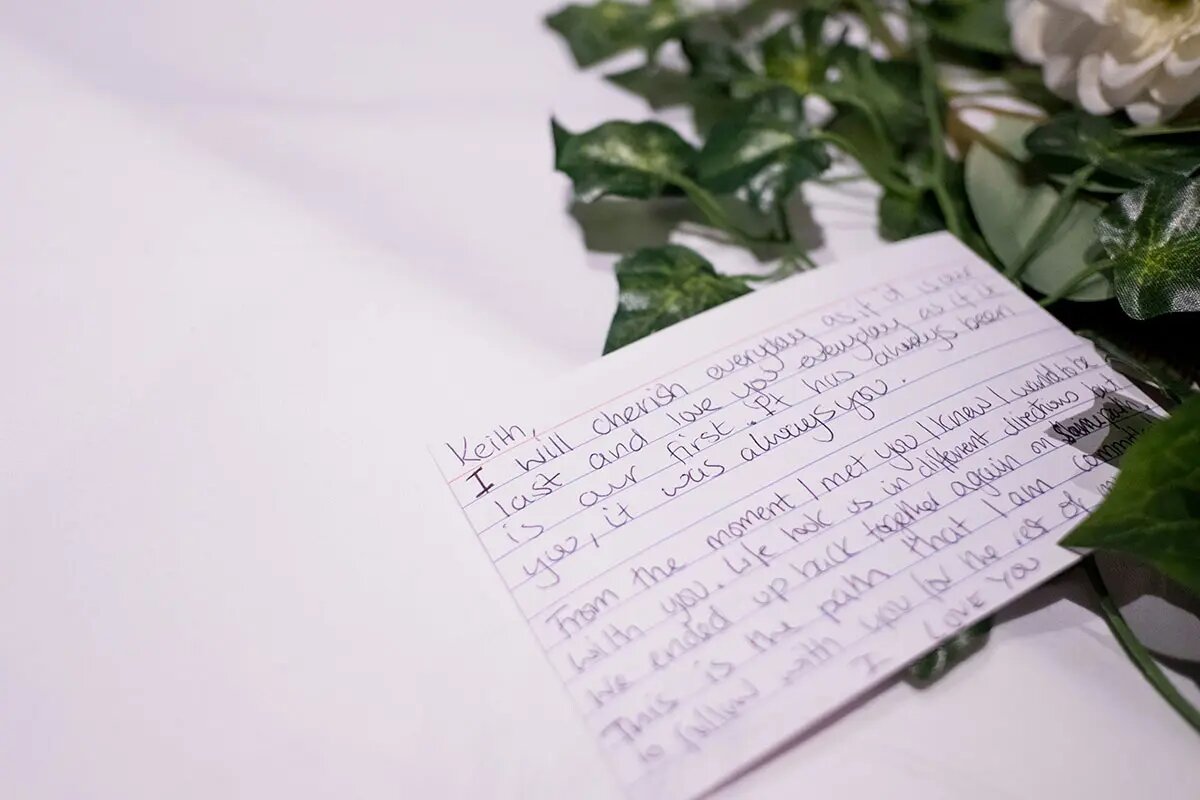 Keith,
I will cherish everyday as if it is our
last and love you everyday as if it
is our first. It has always been
you, it was always you.
From the moment I met you I knew I wanted to be
with you. Life took us in different directions but
we ended up back together again on
This is the path that I am
to follow with you for the rest of
I LOVE YOU